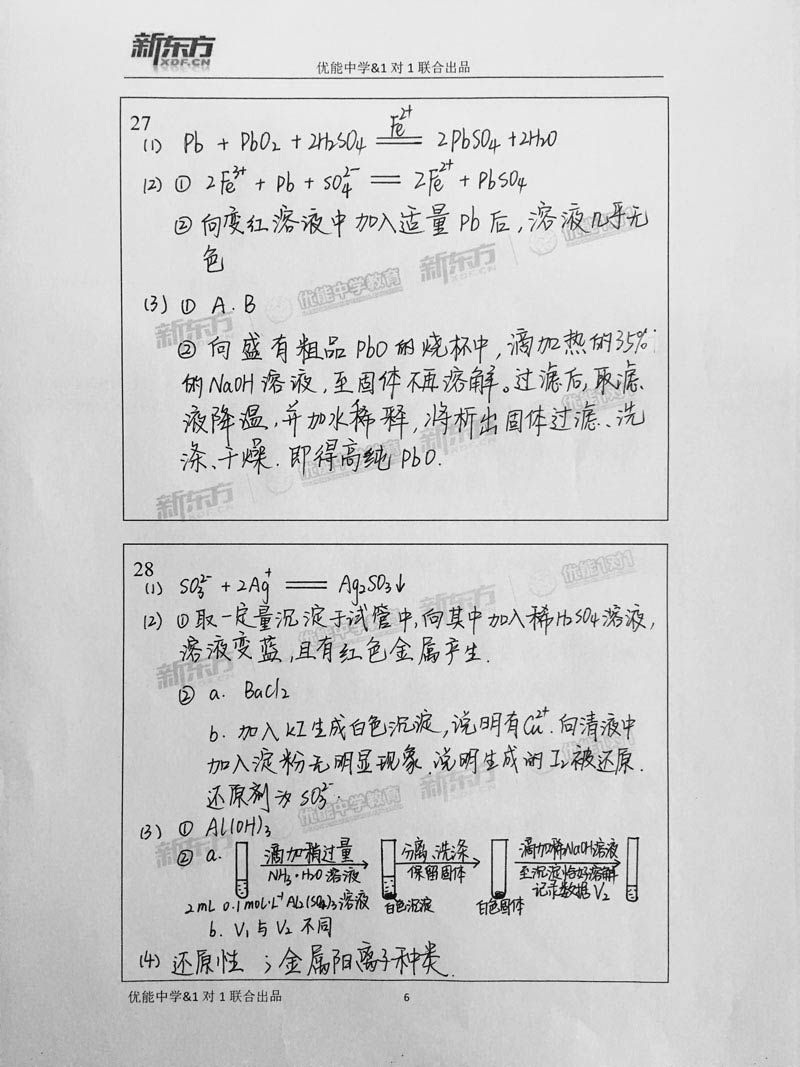 新东方
XDF.CN
优能中学&1 对 1 联合出品
27
(1) Pb + PbO₂ + 2H₂SO₄ ══ 2PbSO₄ + 2H₂O
Fe²⁺
(2) ① 2Fe³⁺ + Pb + SO₄²⁻ ══ 2Fe²⁺ + PbSO₄
② 向变红溶液中加入适量 Pb 后,溶液几乎无
色
(3) ① A.B
② 向盛有粗品 PbO 的烧杯中,滴加热的35%
的NaOH溶液,至固体不再溶解。过滤后,取滤
液降温,并加水稀释,将析出固体过滤、洗
涤、干燥.即得高纯PbO.
28
(1) SO₃²⁻ + 2Ag⁺ ══ Ag₂SO₃↓
(2) ①取一定量沉淀于试管中,向其中加入稀H₂SO₄溶液,
溶液变蓝,且有红色金属产生.
② a. BaCl₂
b. 加入KI生成白色沉淀,说明有Cu²⁺.向清液中
加入淀粉无明显现象.说明生成的I₂被还原.
还原剂为SO₃²⁻.
(3) ① Al(OH)₃
② a. 滴加稍过量 分离、洗涤 滴加稀NaOH溶液
NH₃·H₂O溶液 保留固体 至沉淀恰好溶解
记录数据V₂
2mL 0.1mol·L⁻¹ Al₂(SO₄)₃溶液 白色沉淀 白色固体
b. V₁与V₂不同
(4) 还原性 ; 金属阳离子种类.
优能中学&1 对 1 联合出品
6
新东方 XDF.CN 优能中学教育
优能1对1